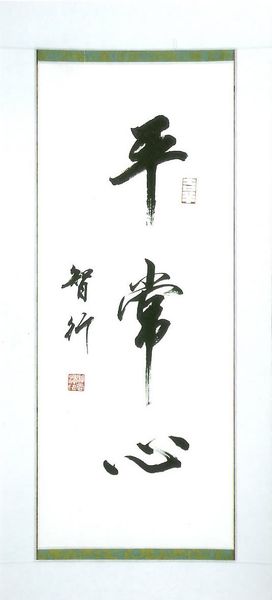 平常心
智行